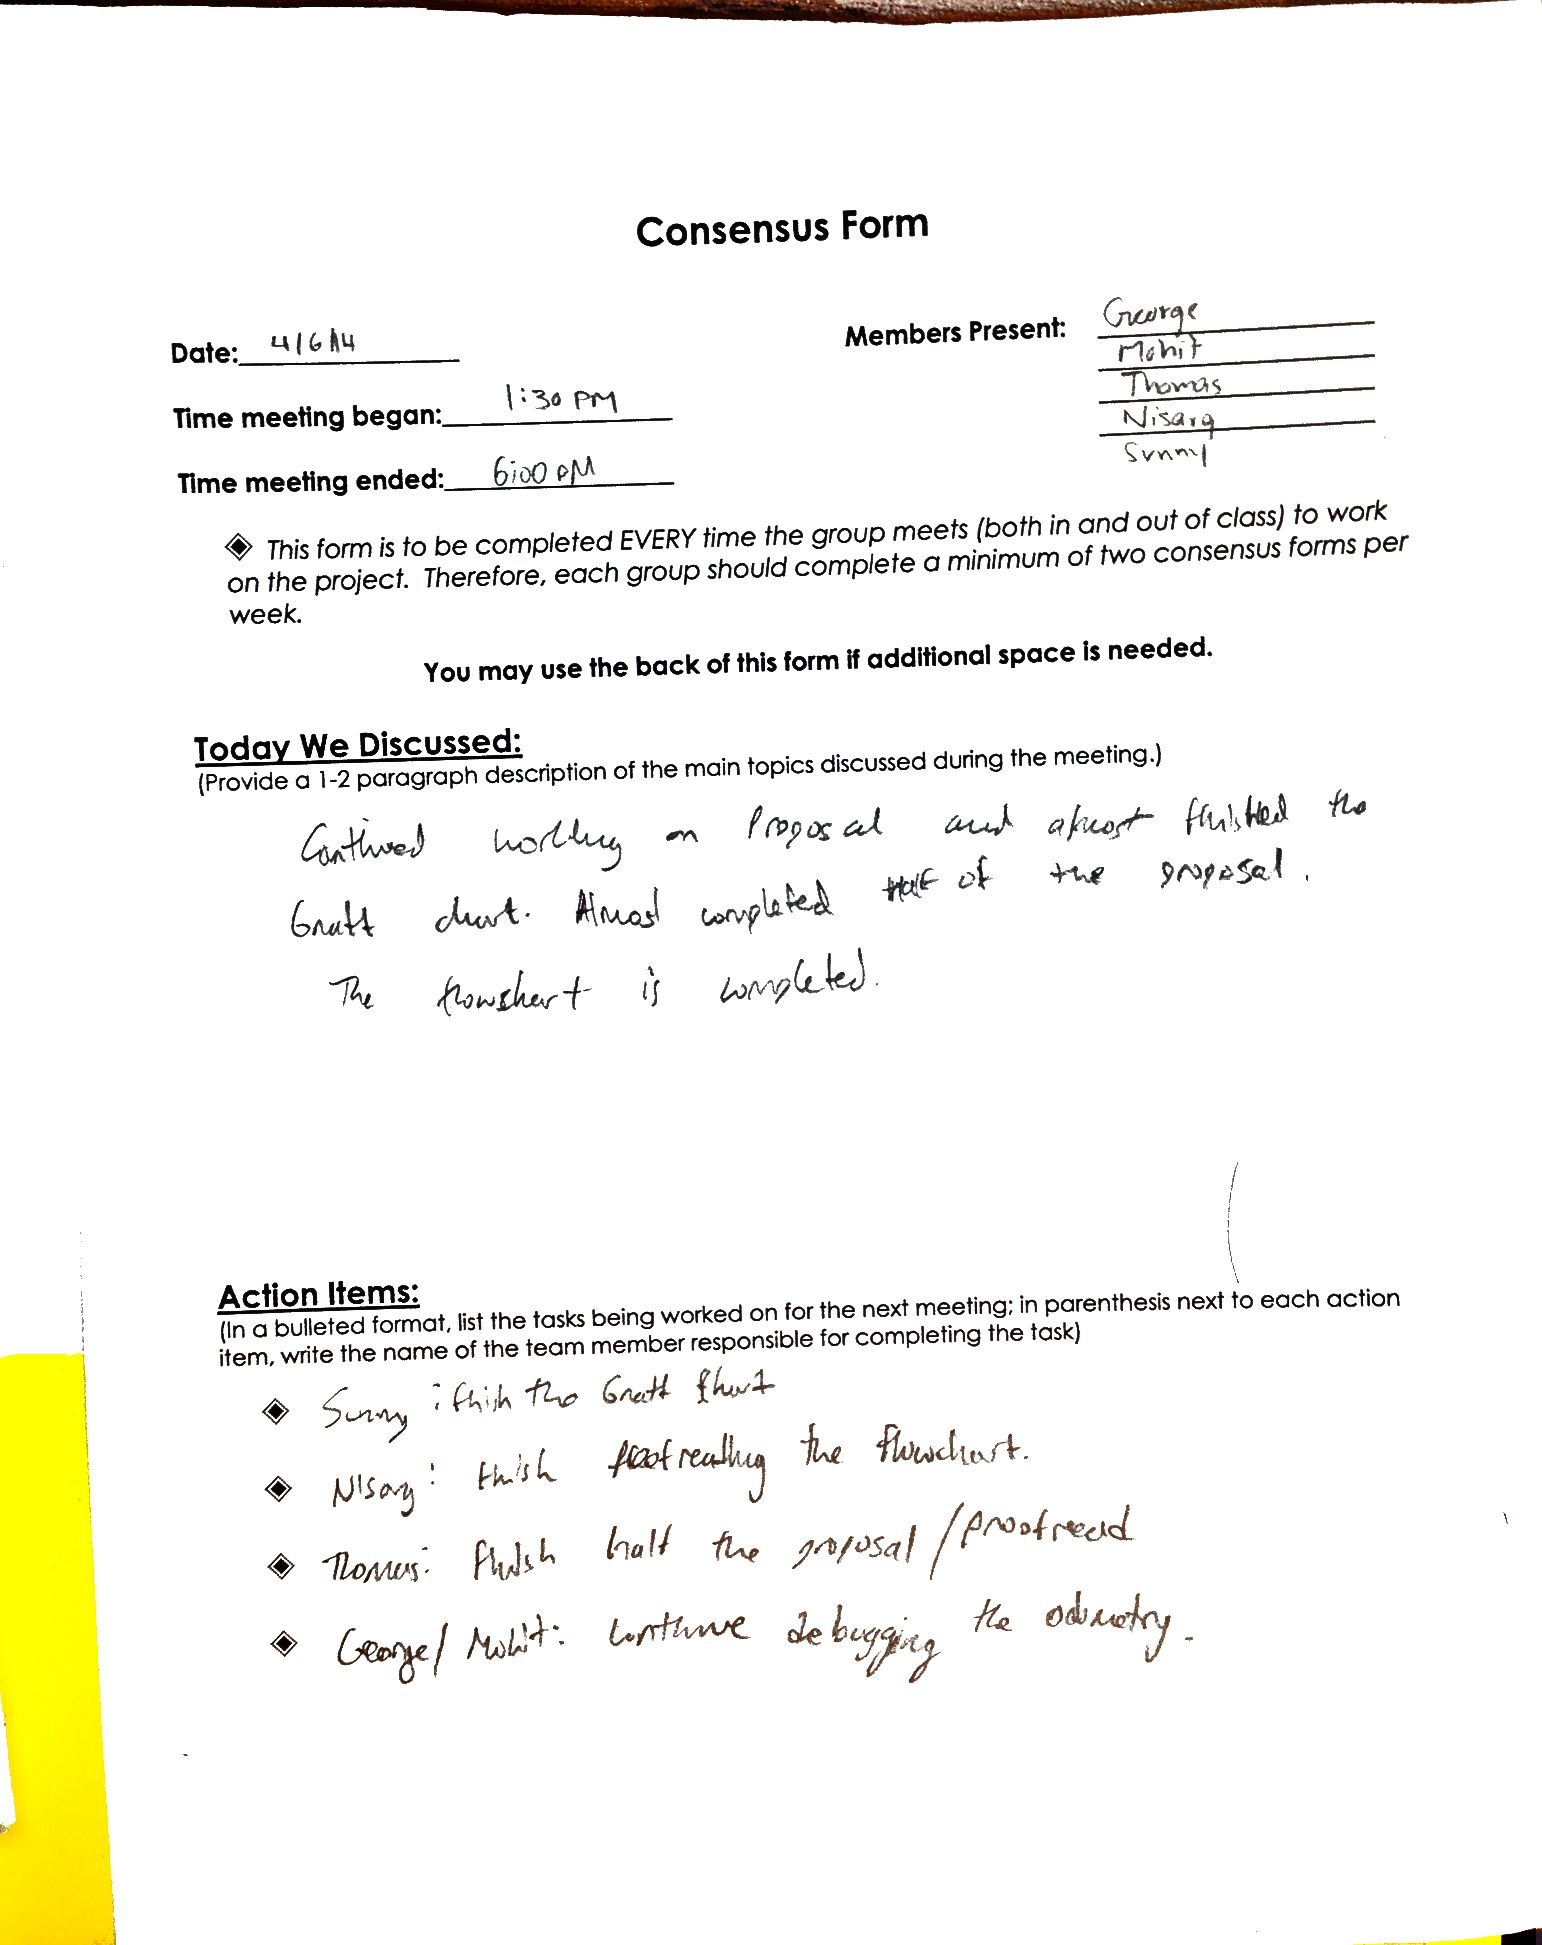 Consensus Form
Date: 4/6/14
Members Present: George
Mohit
Thomas
Nisarg
Sunny
Time meeting began: 1:30 PM
Time meeting ended: 6:00 PM
◈ This form is to be completed EVERY time the group meets (both in and out of class) to work
on the project. Therefore, each group should complete a minimum of two consensus forms per
week.
You may use the back of this form if additional space is needed.
Today We Discussed:
(Provide a 1-2 paragraph description of the main topics discussed during the meeting.)
Continued working on Proposal and almost finished the
Gnatt chart. Almost completed half of the proposal.
The flowshart is completed.
Action Items:
(In a bulleted format, list the tasks being worked on for the next meeting; in parenthesis next to each action
item, write the name of the team member responsible for completing the task)
◈ Sunny: finish the Gnatt
◈ Nisarg: finish proofreading the flowchart.
◈ Thomas: finish half the proposal/proofread
◈ George/Mohit: continue debugging the odometry.